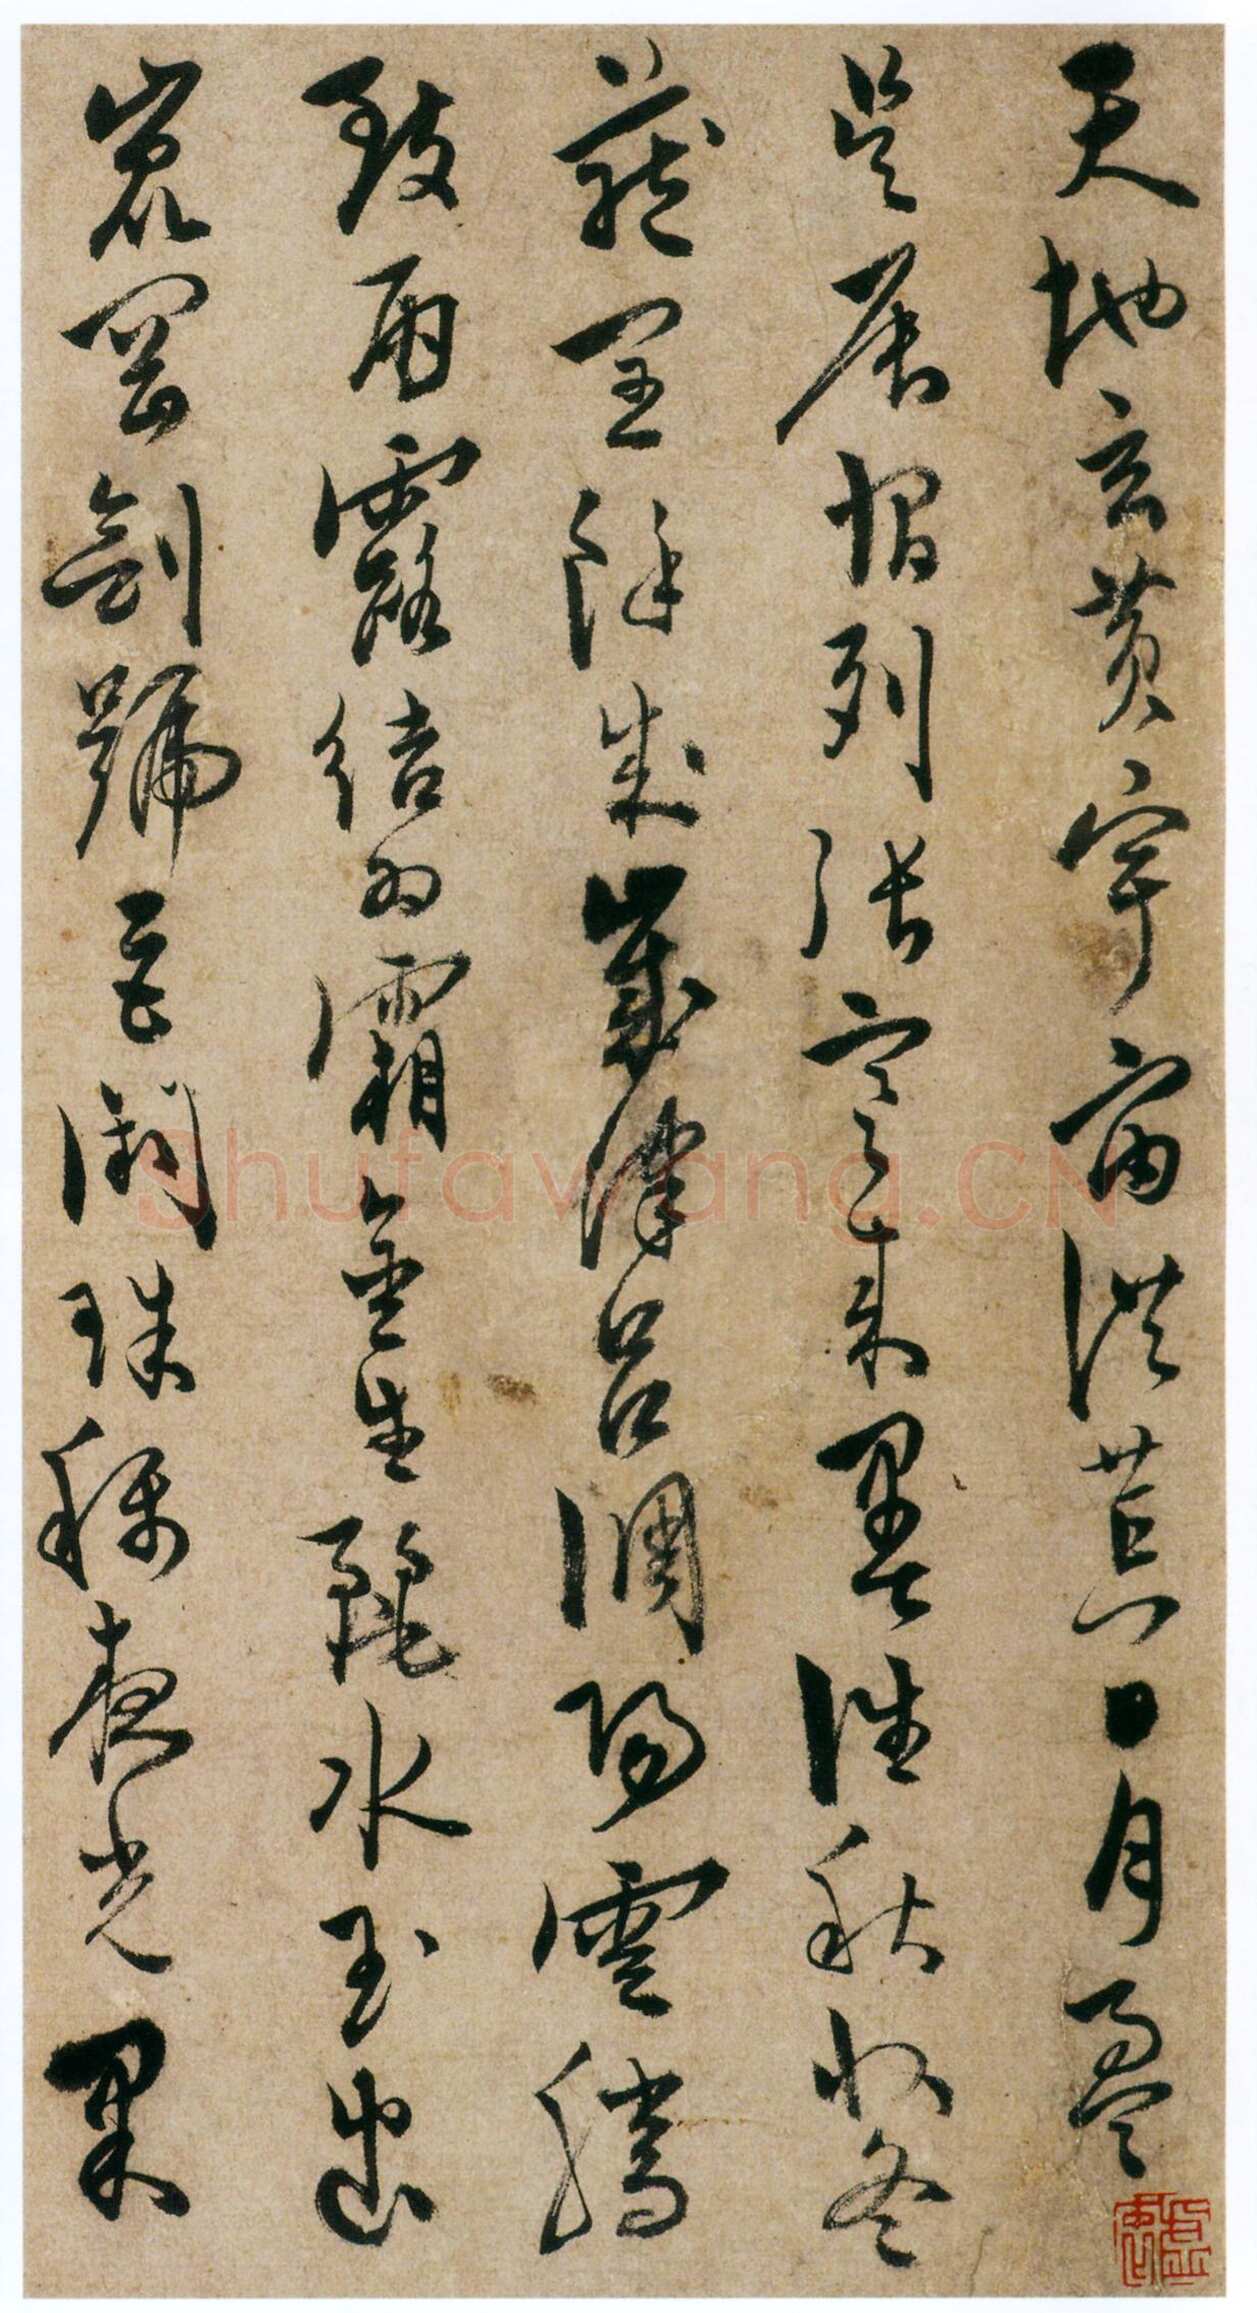 天地玄黃宇宙洪荒日月盈
昃辰宿列張寒來暑往秋收冬
藏閏餘成歲律呂調陽雲騰
致雨露結為霜金生麗水玉出
崑岡劍號巨闕珠稱夜光果
Shufawang.CN